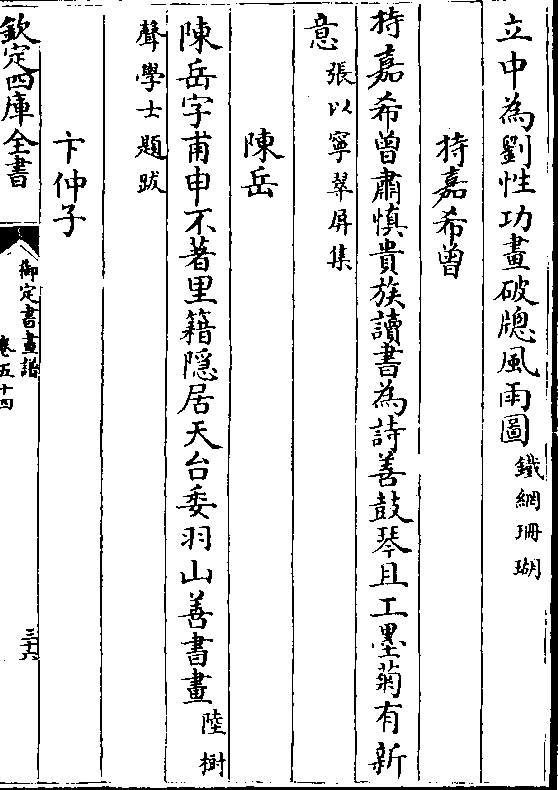 立中為劉性功畫破牕風雨圖鐵網珊瑚
持嘉希曾
持嘉希曾肅慎貴族讀書為詩善鼓琴且工墨菊有新
意張以寧翠屏集
陳岳
陳岳字甫申不著里籍隱居天台委羽山善書畫陸樹
聲學士題跋
卞仲子
欽定四庫全書
御定書畫譜
卷五十四
三十六